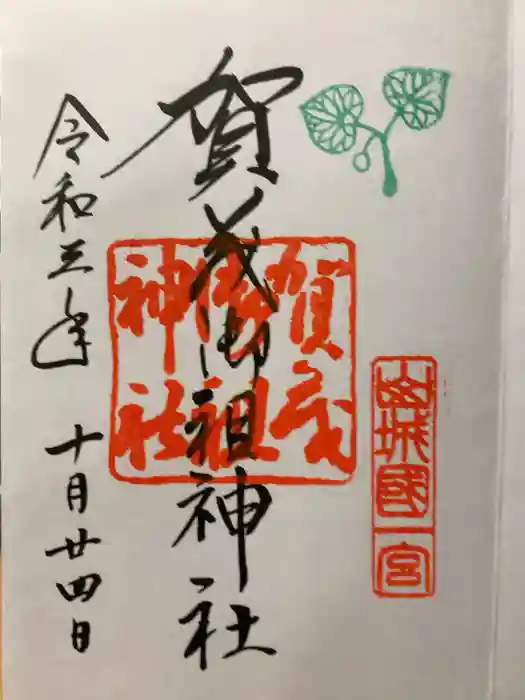 山城國一宮
賀茂御祖神社
賀茂
御祖
神社
令和三年 十月廿四日